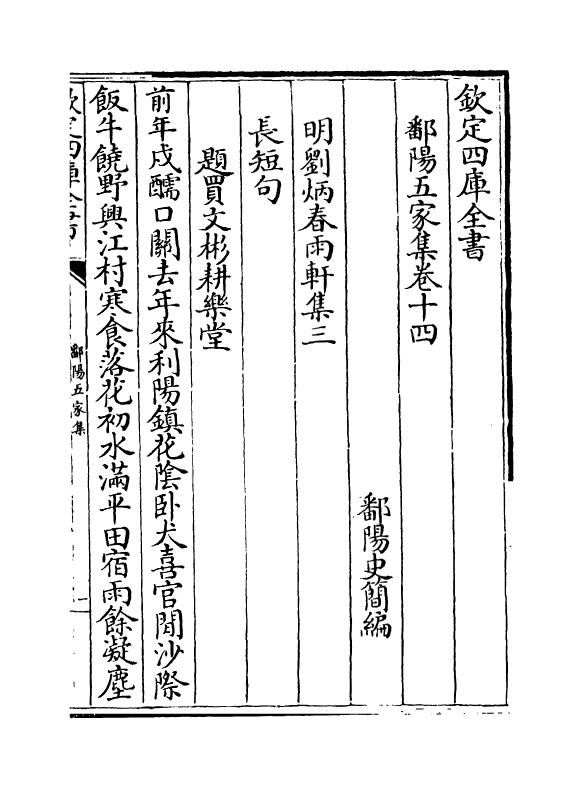 欽定四庫全書
鄱陽五家集卷十四
鄱陽史簡編
明劉炳春雨軒集三
長短句
題賈文彬耕樂堂
前年戍醹口關去年來利陽鎮花陰卧犬喜官閒沙際
飯牛饒野興江村寒食落花初水滿平田宿雨餘凝塵
欽定四庫全書
鄱陽五家集
一